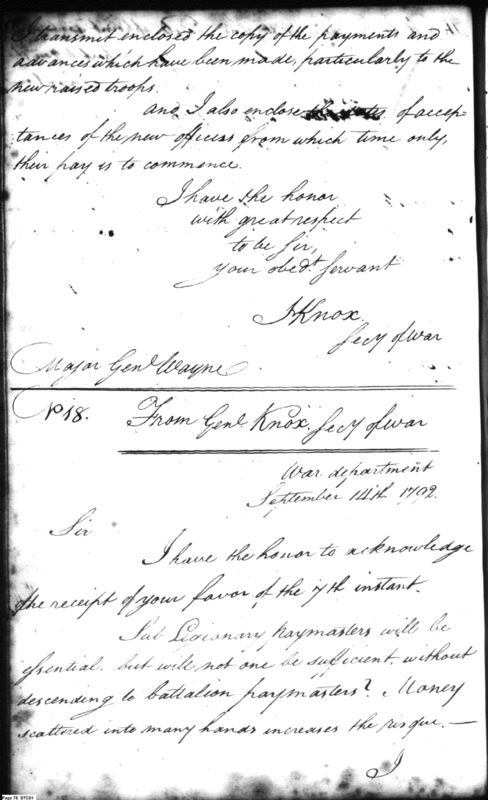 I transmit enclosed the copy of the payments and
advances which have been made, particularly to the
new raised troops.
and I also enclose the dates of accep-
tances of the new officers from which time only,
their pay is to commence.
I have the honor
with great respect
to be Sir,
your obedt. Servant
HKnox.
Secy of War
Major Genl. Wayne
No 18.
From Genl. Knox Secy of War
War department
September 14th 1792.
Sir
I have the honor to acknowledge
the receipt of your favor of the 7th instant.
Sub Legionary paymasters will be
essential. but will not one be sufficient, without
descending to battalion paymasters? Money
scattered into many hands increases the risque. —
I
Page 76 DTC01